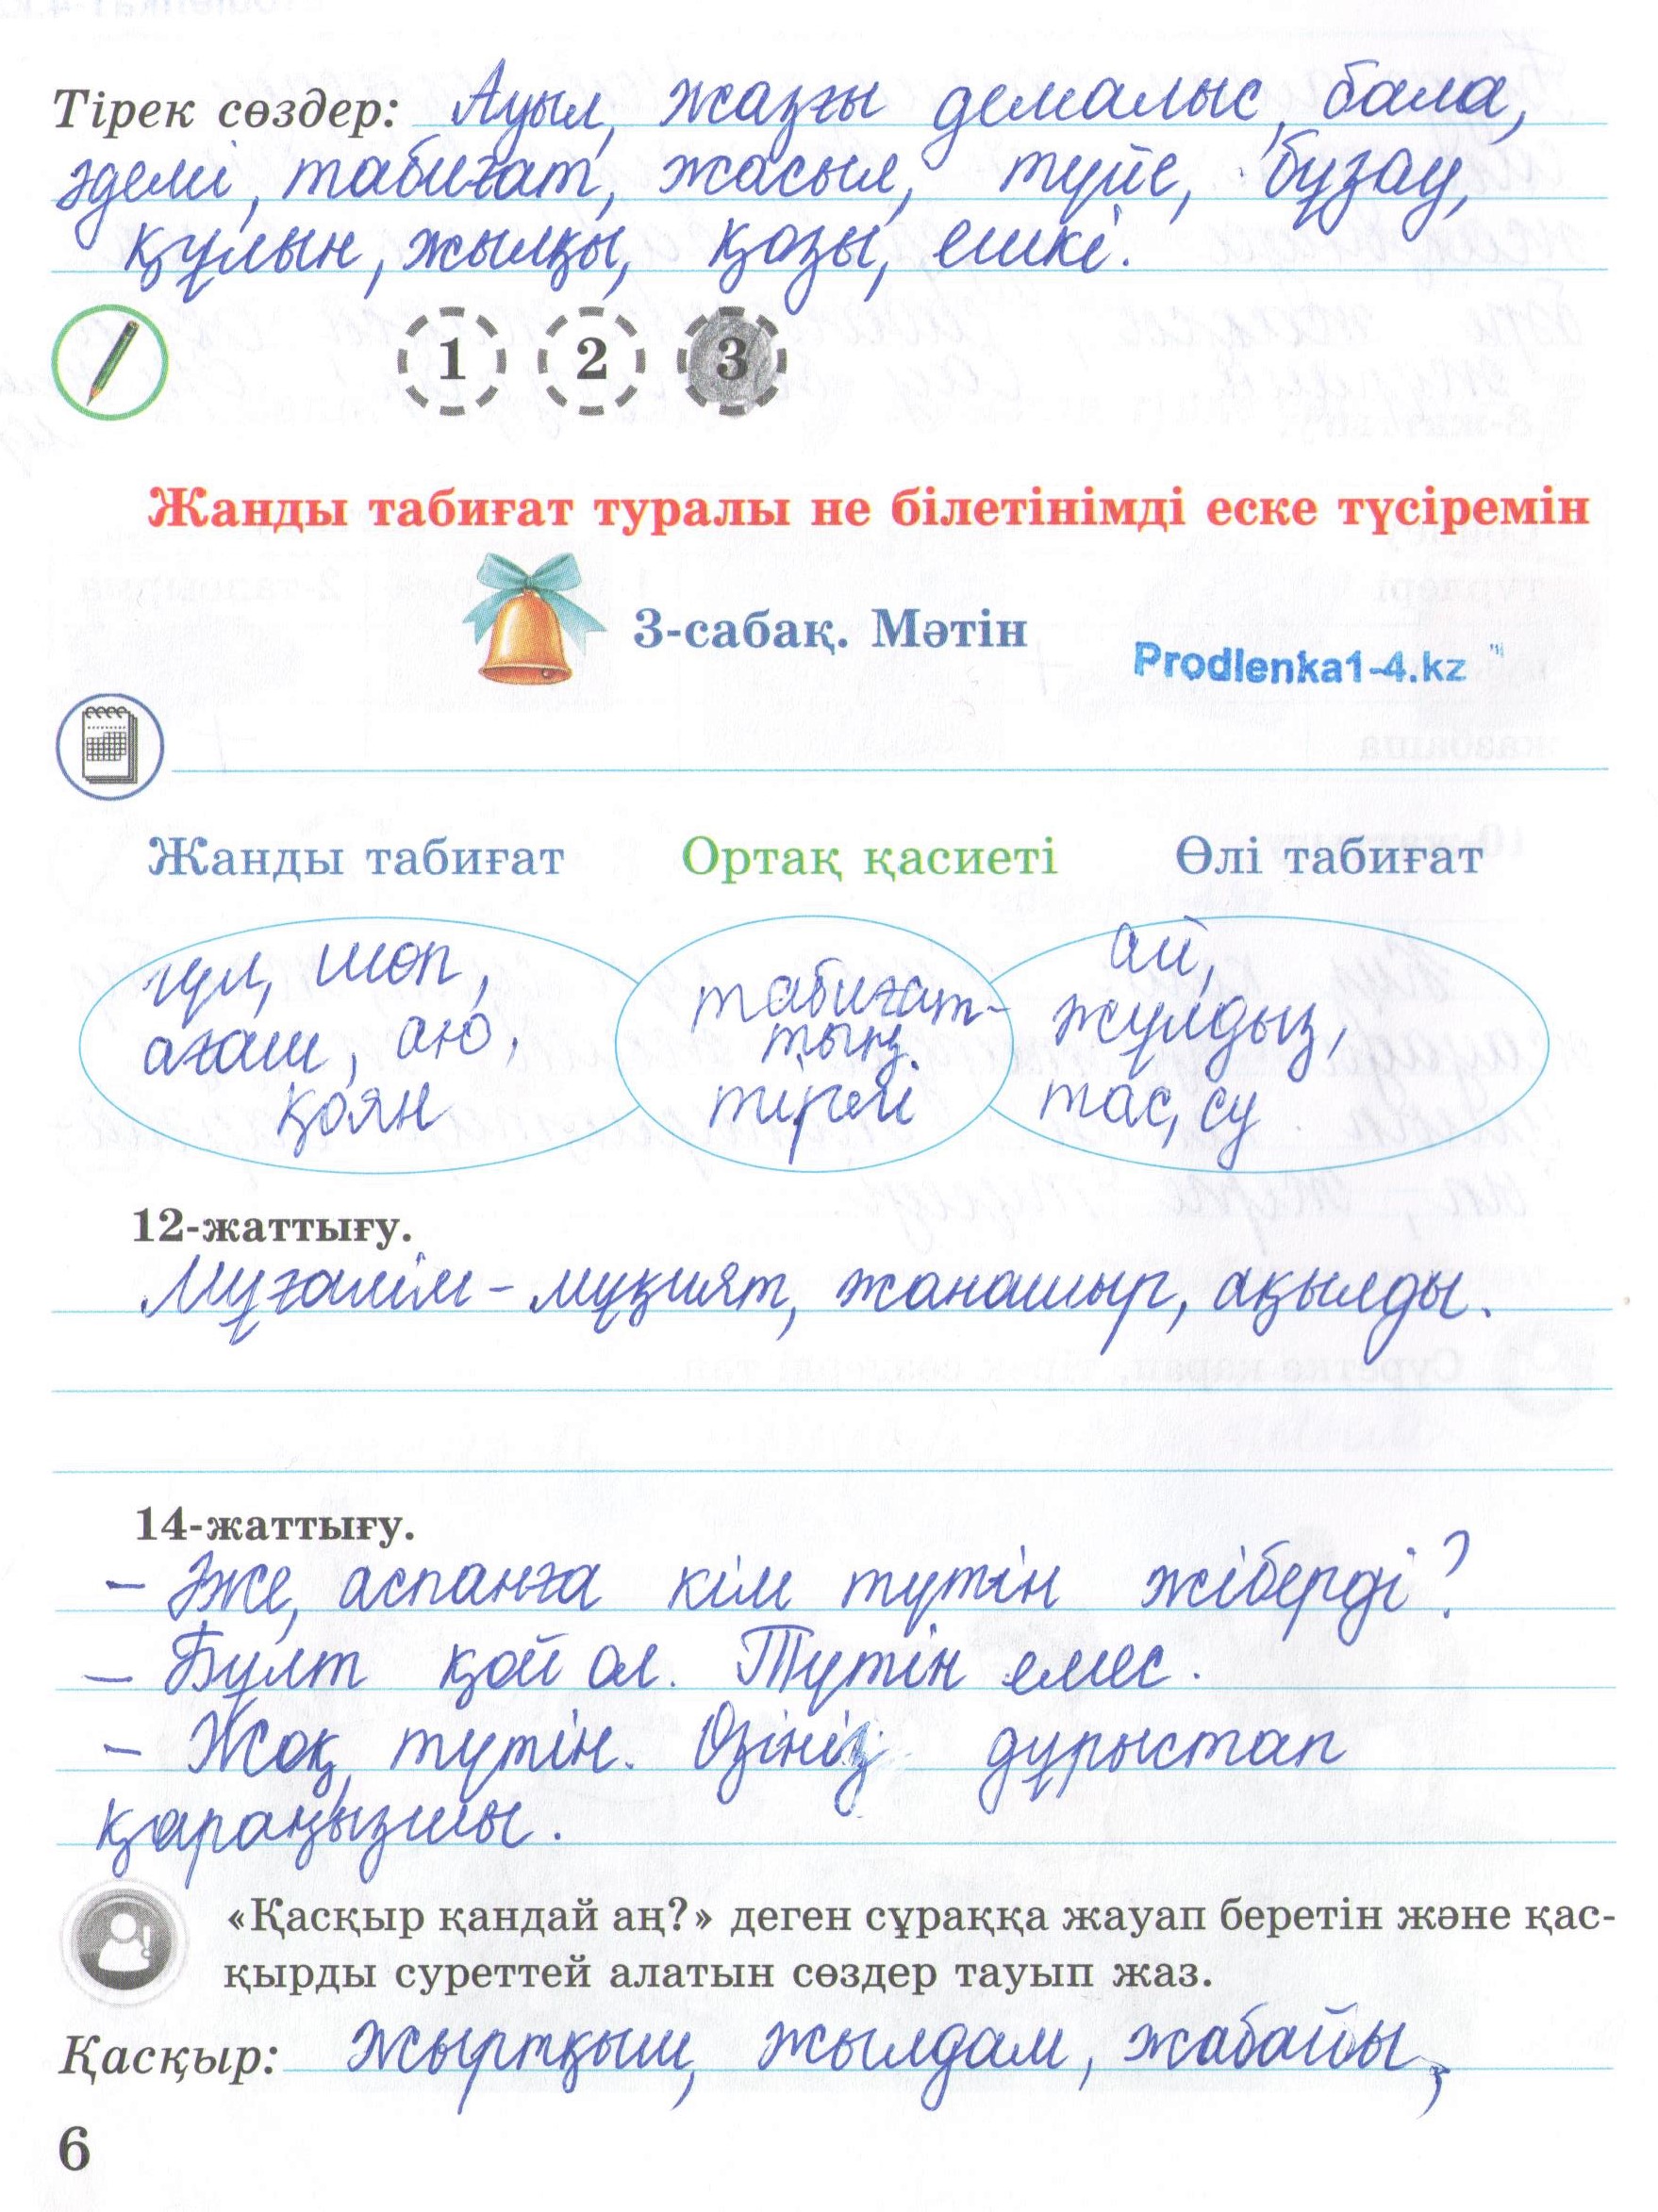 Тірек сөздер: Ауыл, жазғы демалыс, бала,
әдемі, табиғат, жасыл, түйе, бұзау,
құлын, жылқы, қозы, ешкі.
1 2 3
Жанды табиғат туралы не білетінімді еске түсіремін
3-сабақ. Мәтін
Prodlenka1-4.kz
Жанды табиғат Ортақ қасиеті Өлі табиғат
гүл, шөп,
ағаш, аю,
қоян
табиғат-
тың
тірегі
ай,
жұлдыз,
тас, су
12-жаттығу.
Мұғалім – мұқият, жанашыр, ақылды.
14-жаттығу.
– Әже, аспанға кім түтін жіберді?
– Бұлт қой ол. Түтін емес.
– Жоқ, түтін. Өзініз дұрыстап
қараңызшы.
«Қасқыр қандай аң?» деген сұраққа жауап беретін және қас-
қырды суреттей алатын сөздер тауып жаз.
Қасқыр: жыртқыш, жылдам, жабайы,
6